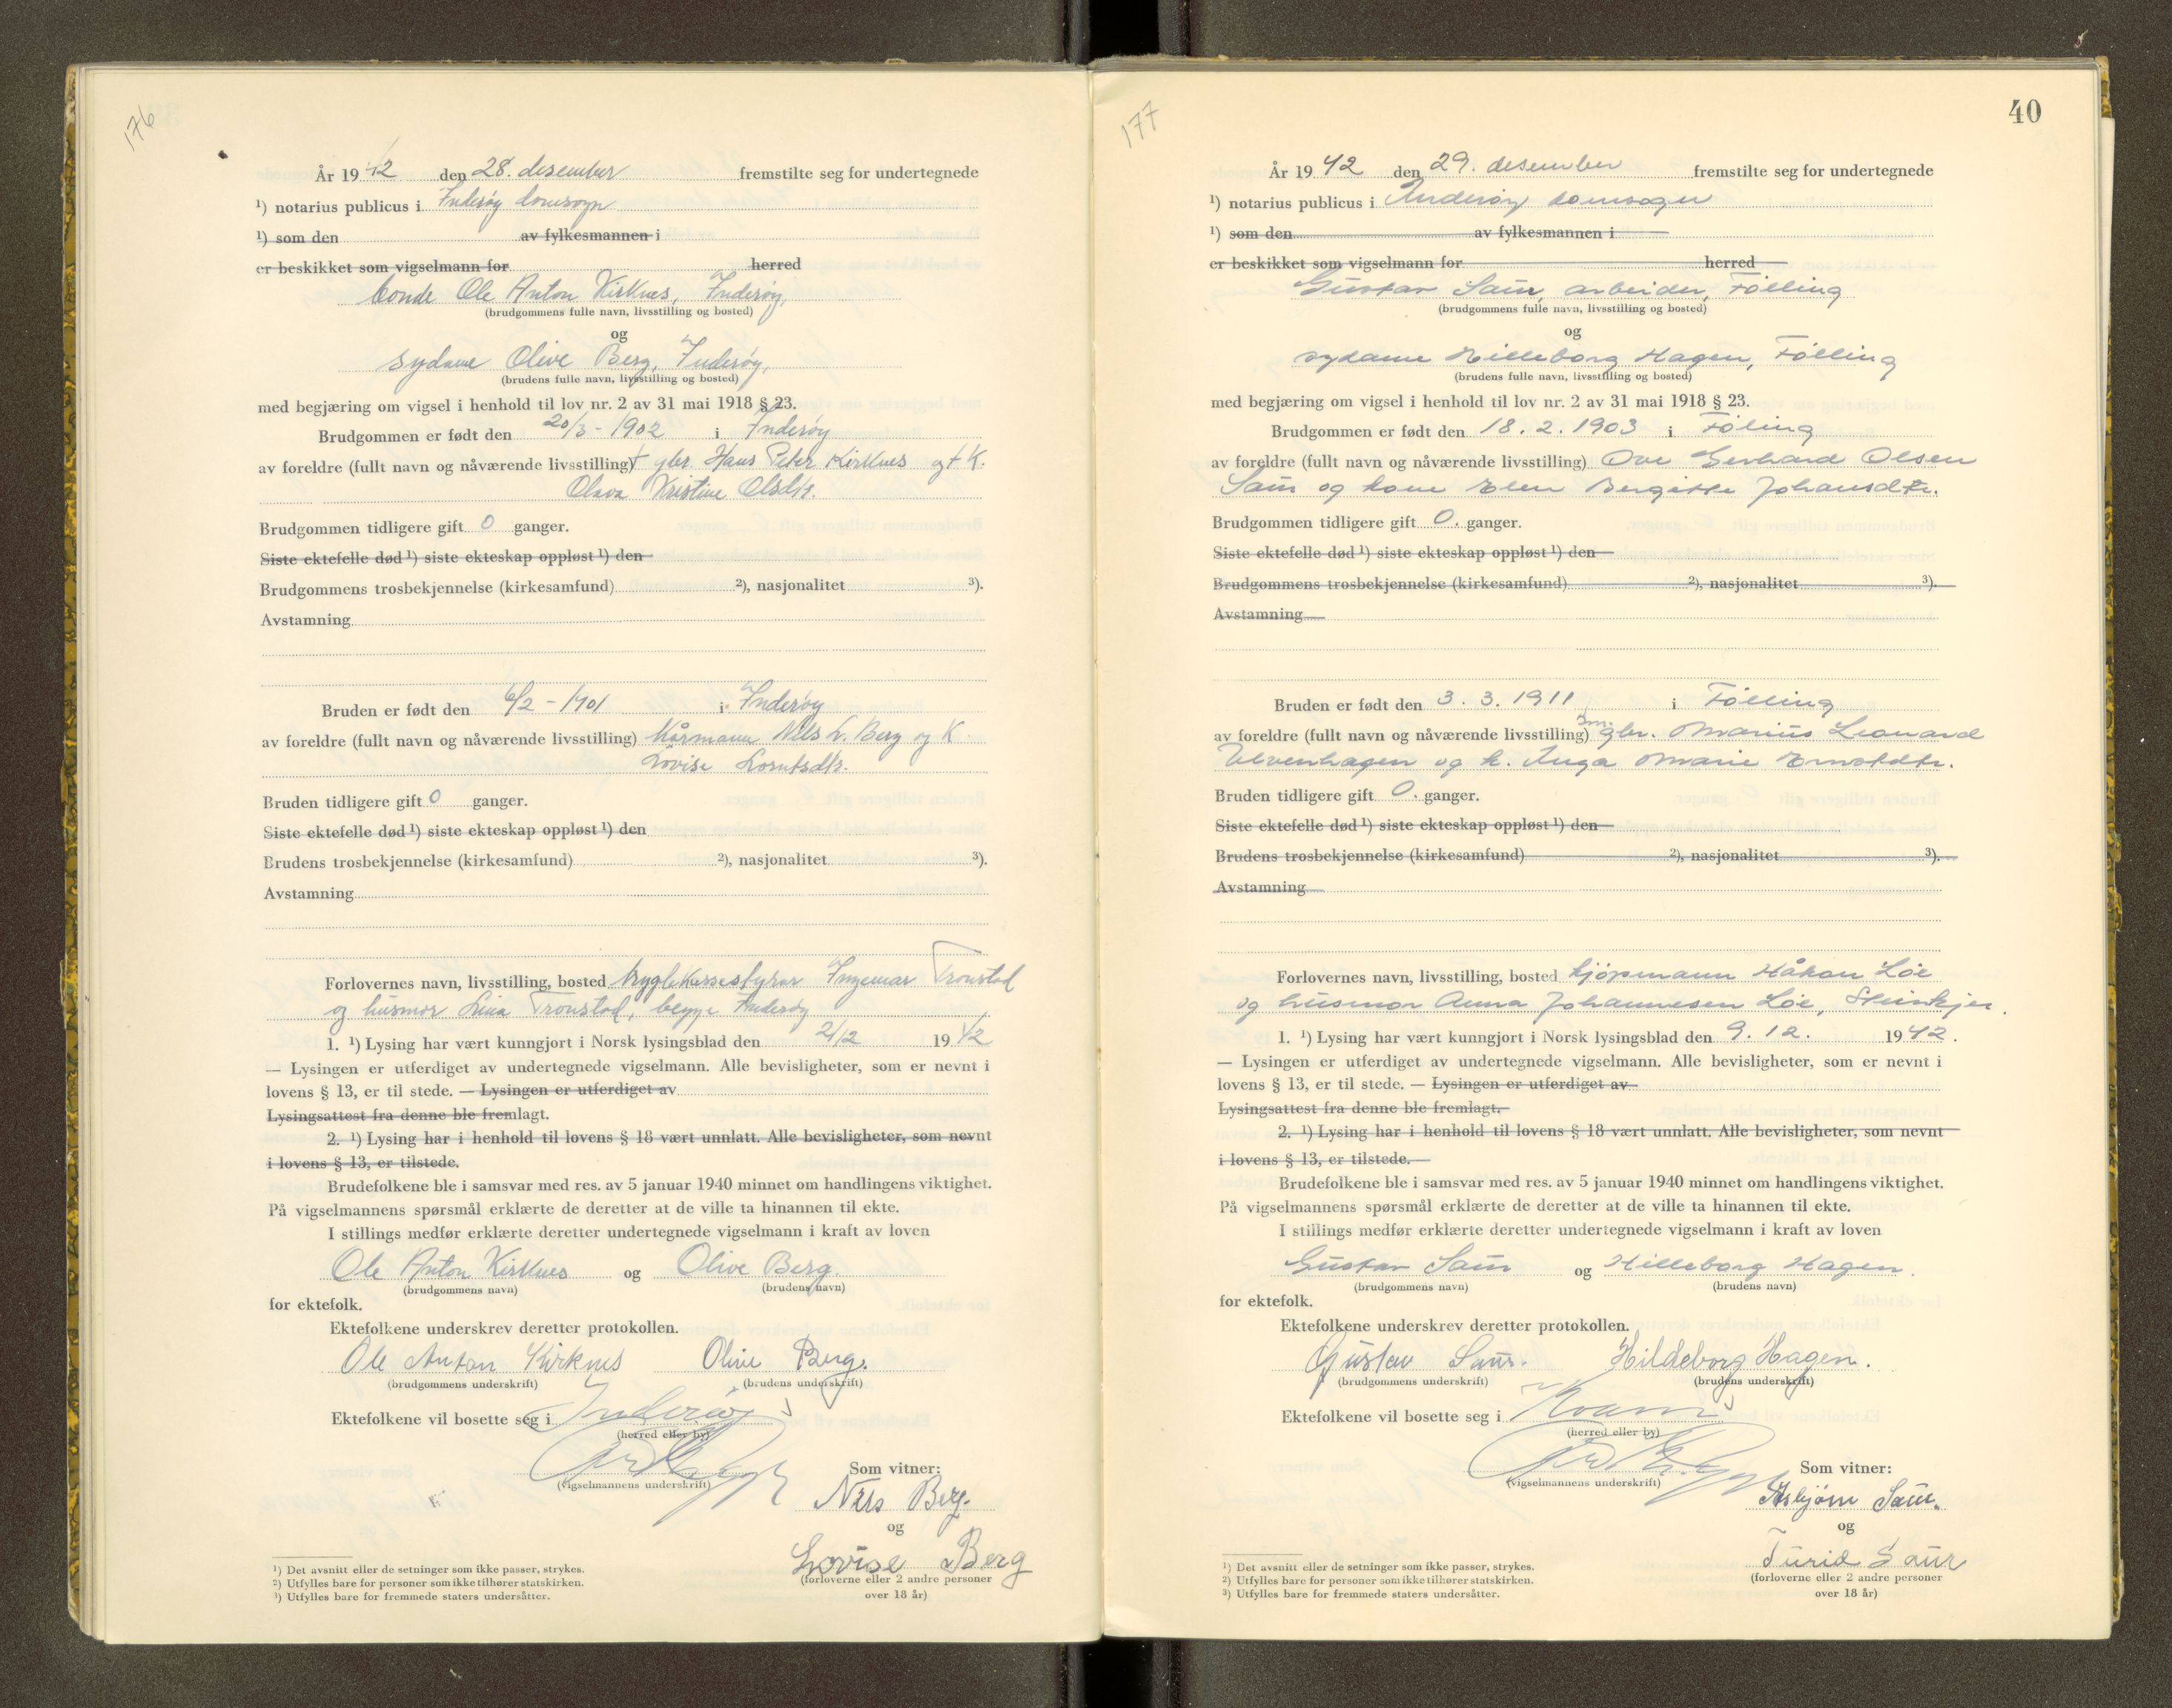 176
År 1942 den 28. desember fremstilte seg for undertegnede
¹) notarius publicus i Inderøy domsogn
¹) som den av fylkesmannen i
er beskikket som vigselmann for herred
bonde Ole Anton Kirknes, Inderøy,
(brudgommens fulle navn, livsstilling og bosted)
og
sydame Olive Berg, Inderøy,
(brudens fulle navn, livsstilling og bosted)
med begjæring om vigsel i henhold til lov nr. 2 av 31 mai 1918 § 23.
Brudgommen er født den 20/3 - 1902 i Inderøy
av foreldre (fullt navn og nåværende livsstilling) † gbr. Hans Peter Kirknes og † K.
Olava Kristine Olsdtr.
Brudgommen tidligere gift 0 ganger.
Siste ektefelle død ¹) siste ekteskap oppløst ¹) den
Brudgommens trosbekjennelse (kirkesamfund) ²), nasjonalitet ³).
Avstamning
Bruden er født den 6/2 - 1901 i Inderøy
av foreldre (fullt navn og nåværende livsstilling) Kårmann Nils L. Berg og K
Lovise Lorntsdtr.
Bruden tidligere gift 0 ganger.
Siste ektefelle død ¹) siste ekteskap oppløst ¹) den
Brudens trosbekjennelse (kirkesamfund) ²), nasjonalitet ³).
Avstamning
Forlovernes navn, livsstilling, bosted trygdekassestyrer Ingemar Tronstad
og husmor Lina Tronstad, begge Inderøy
1. ¹) Lysing har vært kunngjort i Norsk lysingsblad den 2/12 1942
— Lysingen er utferdiget av undertegnede vigselmann. Alle bevisligheter, som er nevnt i
lovens § 13, er til stede. — Lysingen er utferdiget av
Lysingsattest fra denne ble fremlagt.
2. ¹) Lysing har i henhold til lovens § 18 vært unnlatt. Alle bevisligheter, som nevnt
i lovens § 13, er tilstede.
Brudefolkene ble i samsvar med res. av 5 januar 1940 minnet om handlingens viktighet.
På vigselmannens spørsmål erklærte de deretter at de ville ta hinannen til ekte.
I stillings medfør erklærte deretter undertegnede vigselmann i kraft av loven
Ole Anton Kirknes og Olive Berg.
(brudgommens navn) (brudens navn)
for ektefolk.
Ektefolkene underskrev deretter protokollen.
Ole Anton Kirknes Olive Berg.
(brudgommens underskrift) (brudens underskrift)
Ektefolkene vil bosette seg i Inderøy
(herred eller by)
(vigselmannens underskrift)
Som vitner:
Nils Berg.
og
Lovise Berg
(forloverne eller 2 andre personer
over 18 år)
¹) Det avsnitt eller de setninger som ikke passer, strykes.
²) Utfylles bare for personer som ikke tilhører statskirken.
³) Utfylles bare for fremmede staters undersåtter.
177
40
År 1942 den 29. desember fremstilte seg for undertegnede
¹) notarius publicus i Inderøy domsogn
¹) som den av fylkesmannen i
er beskikket som vigselmann for herred
Gustav Saur, arbeider, Følling
(brudgommens fulle navn, livsstilling og bosted)
og
sydame Hilleborg Hagen, Følling
(brudens fulle navn, livsstilling og bosted)
med begjæring om vigsel i henhold til lov nr. 2 av 31 mai 1918 § 23.
Brudgommen er født den 18. 2. 1903 i Føling
av foreldre (fullt navn og nåværende livsstilling) Ove Gerhard Olsen
Saur og kone Elen Bergitte Johansdtr.
Brudgommen tidligere gift 0. ganger.
Siste ektefelle død ¹) siste ekteskap oppløst ¹) den
Brudgommens trosbekjennelse (kirkesamfund) ²), nasjonalitet ³).
Avstamning
Bruden er født den 3. 3. 1911 i Følling
av foreldre (fullt navn og nåværende livsstilling) gbr. Marius Leonard
Ulvenhagen og k. Inga Marie
Bruden tidligere gift 0. ganger.
Siste ektefelle død ¹) siste ekteskap oppløst ¹) den
Brudens trosbekjennelse (kirkesamfund) ²), nasjonalitet ³).
Avstamning
Forlovernes navn, livsstilling, bosted kjøpmann Håkon Løe
og husmor Anna Johannesen Løe, Steinkjer.
1. ¹) Lysing har vært kunngjort i Norsk lysingsblad den 9. 12. 1942.
— Lysingen er utferdiget av undertegnede vigselmann. Alle bevisligheter, som er nevnt i
lovens § 13, er til stede. — Lysingen er utferdiget av
Lysingsattest fra denne ble fremlagt.
2. ¹) Lysing har i henhold til lovens § 18 vært unnlatt. Alle bevisligheter, som nevnt
i lovens § 13, er tilstede.
Brudefolkene ble i samsvar med res. av 5 januar 1940 minnet om handlingens viktighet.
På vigselmannens spørsmål erklærte de deretter at de ville ta hinannen til ekte.
I stillings medfør erklærte deretter undertegnede vigselmann i kraft av loven
Gustav Saur og Hilleborg Hagen.
(brudgommens navn) (brudens navn)
for ektefolk.
Ektefolkene underskrev deretter protokollen.
Gustav Saur. Hildeborg Hagen.
(brudgommens underskrift) (brudens underskrift)
Ektefolkene vil bosette seg i Kvam
(herred eller by)
(vigselmannens underskrift)
Som vitner:
Asbjørn Saur.
og
Turid Saur
(forloverne eller 2 andre personer
over 18 år)
¹) Det avsnitt eller de setninger som ikke passer, strykes.
²) Utfylles bare for personer som ikke tilhører statskirken.
³) Utfylles bare for fremmede staters undersåtter.